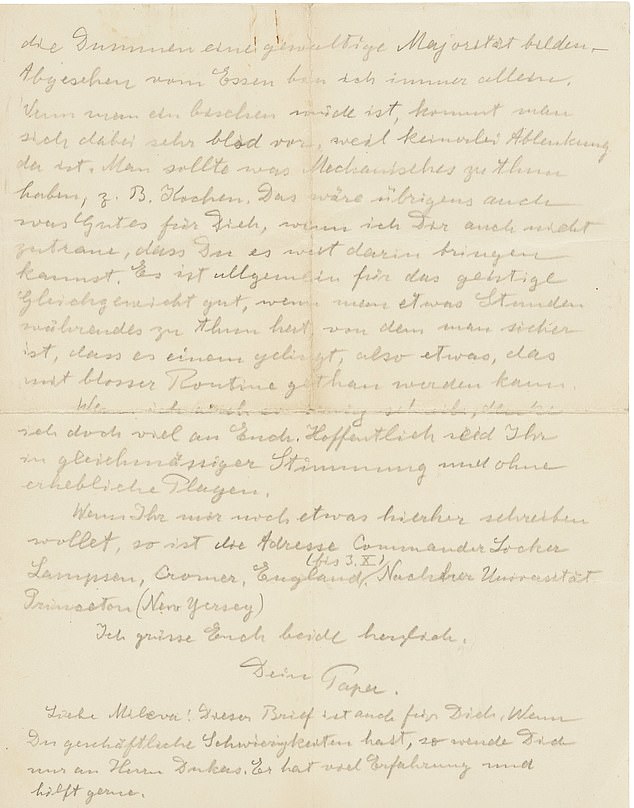 die Dummen eine gewaltige Majorität bilden.
Abgesehen vom Essen bin ich immer allein.
Wenn man ein bischen müde ist, kommt man
sich dabei sehr blöd vor, weil keinerlei Ablenkung
da ist. Man sollte was Mechanisches zu thun
haben, z. B. Kochen. Das wäre übrigens auch
was Gutes für Dich, wenn ich Dir auch nicht
zutraue, dass Du es weit darin bringen
kannst. Es ist allgemein für das geistige
Gleichgewicht gut, wenn man etwas Stunden
währendes zu thun hat, von dem man sicher
ist, dass es einem gelingt, also etwas, das
mit blosser Routine gethan werden kann.
Wenn ich auch so wenig schreib, denke
ich doch viel an Euch. Hoffentlich seid Ihr
in gleichmässiger Stimmung und ohne
erhebliche Plagen.
Wenn Ihr mir noch etwas hierher schreiben
wollet, so ist die Adresse Commander Locker
(bis 3. X)
Lampson, Cromer, England, Nachher Universität
Princeton (New Yersey)
Ich grüsse Euch beide herzlich.
Dein Papa.
Liebe Mileva! Dieser Brief ist auch für Dich. Wenn
Du geschäftliche Schwierigkeiten hast, so wende Dich
nur an Herrn Dukas. Er hat viel Erfahrung und
hilft gerne.